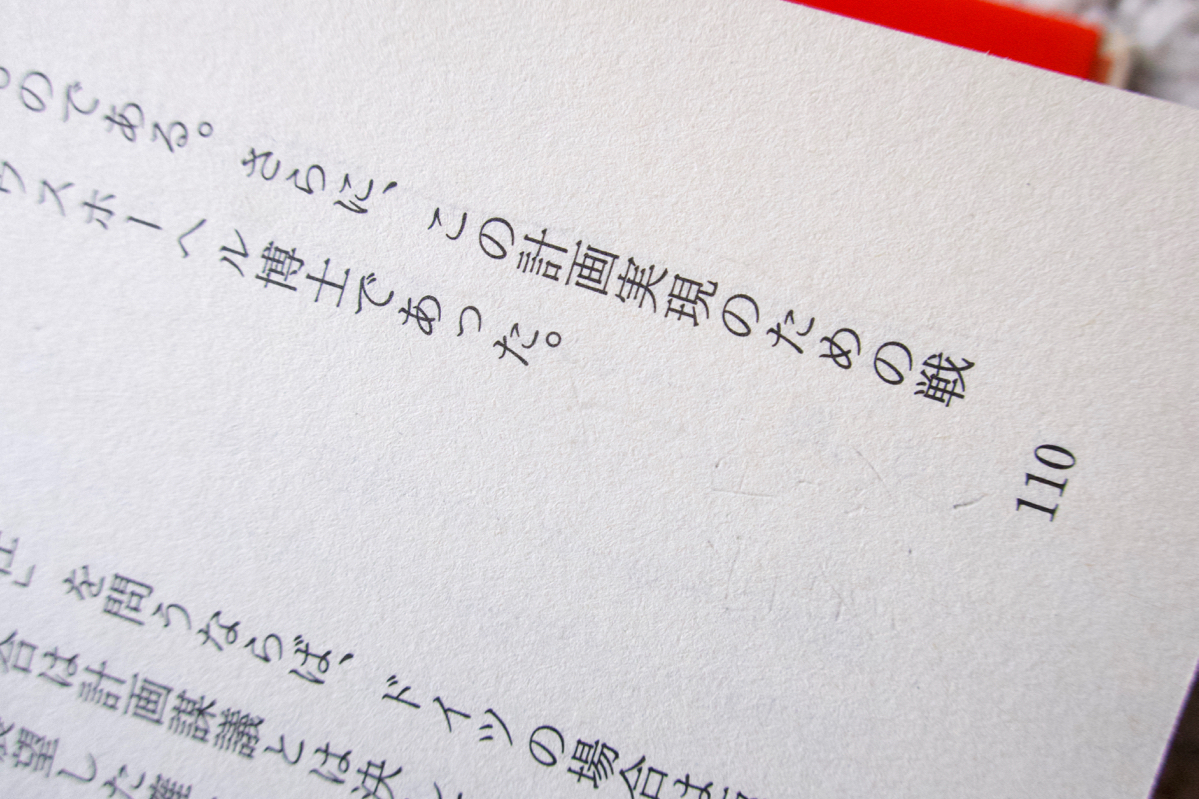 のである。さらに、この計画実現のための戦
ウスホーヘル博士であった。
110
」を問うならば、ドイツの場合は
合は計画謀議とは決
望した